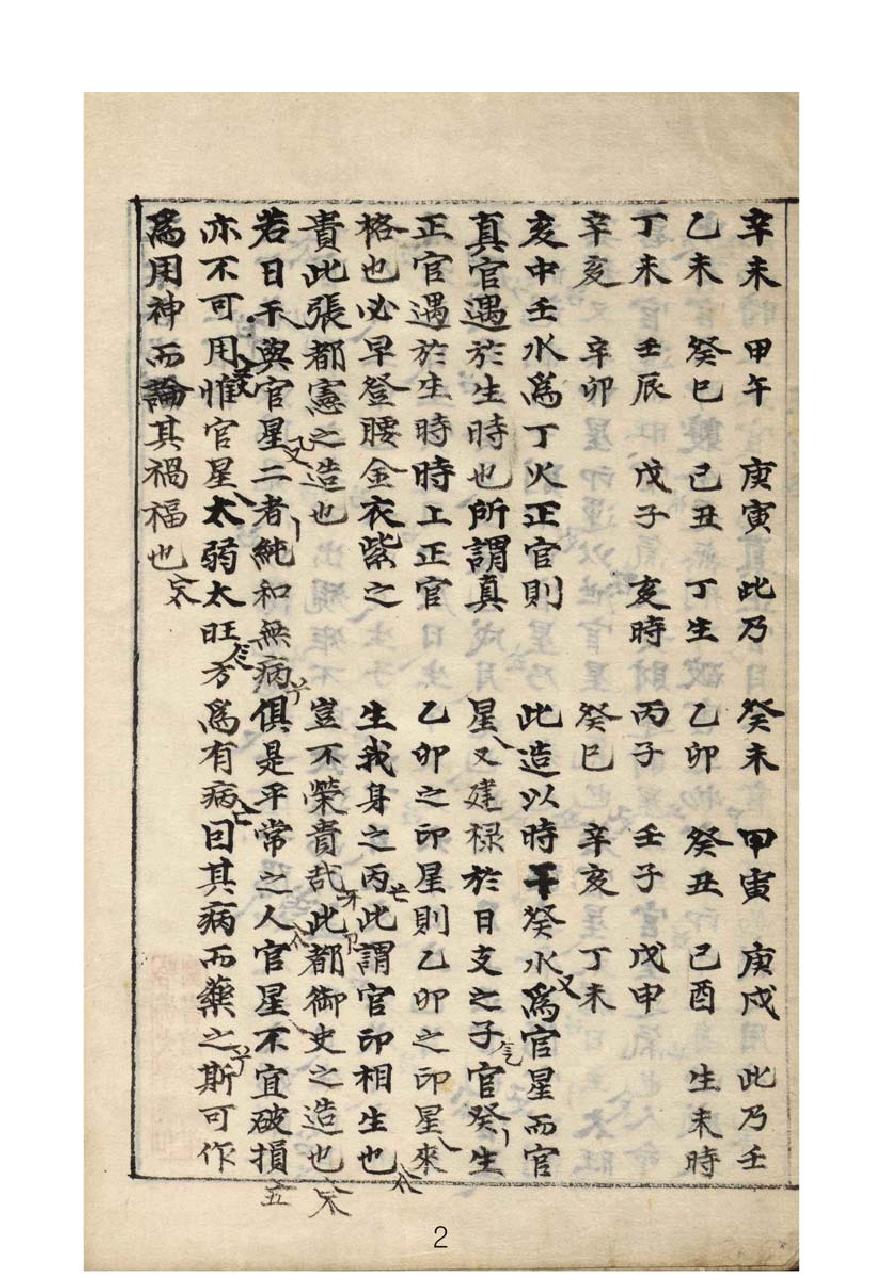 辛未 甲午 庚寅 此乃
乙未 癸巳 己丑 丁生
丁未 壬辰 戊子 亥時
辛亥 辛卯
亥中壬水爲丁火正官則
真官遇於生時也所謂真
正官遇於生時時上正官
格也必早登腰金衣紫之
貴此張都憲之造也
癸未 甲寅 庚戌 此乃壬
乙卯 癸丑 己酉 生未時
丙子 壬子 戊申
癸巳 辛亥 丁未
此造以時干癸水爲官星而官
星又建禄於日支之子官癸生
乙卯之印星則乙卯之印星來
生我身之丙此謂官印相生也
豈不榮貴哉此都御史之造也
若日干與官星二者純和無病俱是平常之人官星不宜破損
亦不可用惟官星太弱太旺方爲有病曰其病而藥之斯可作
爲用神而論其禍福也
2